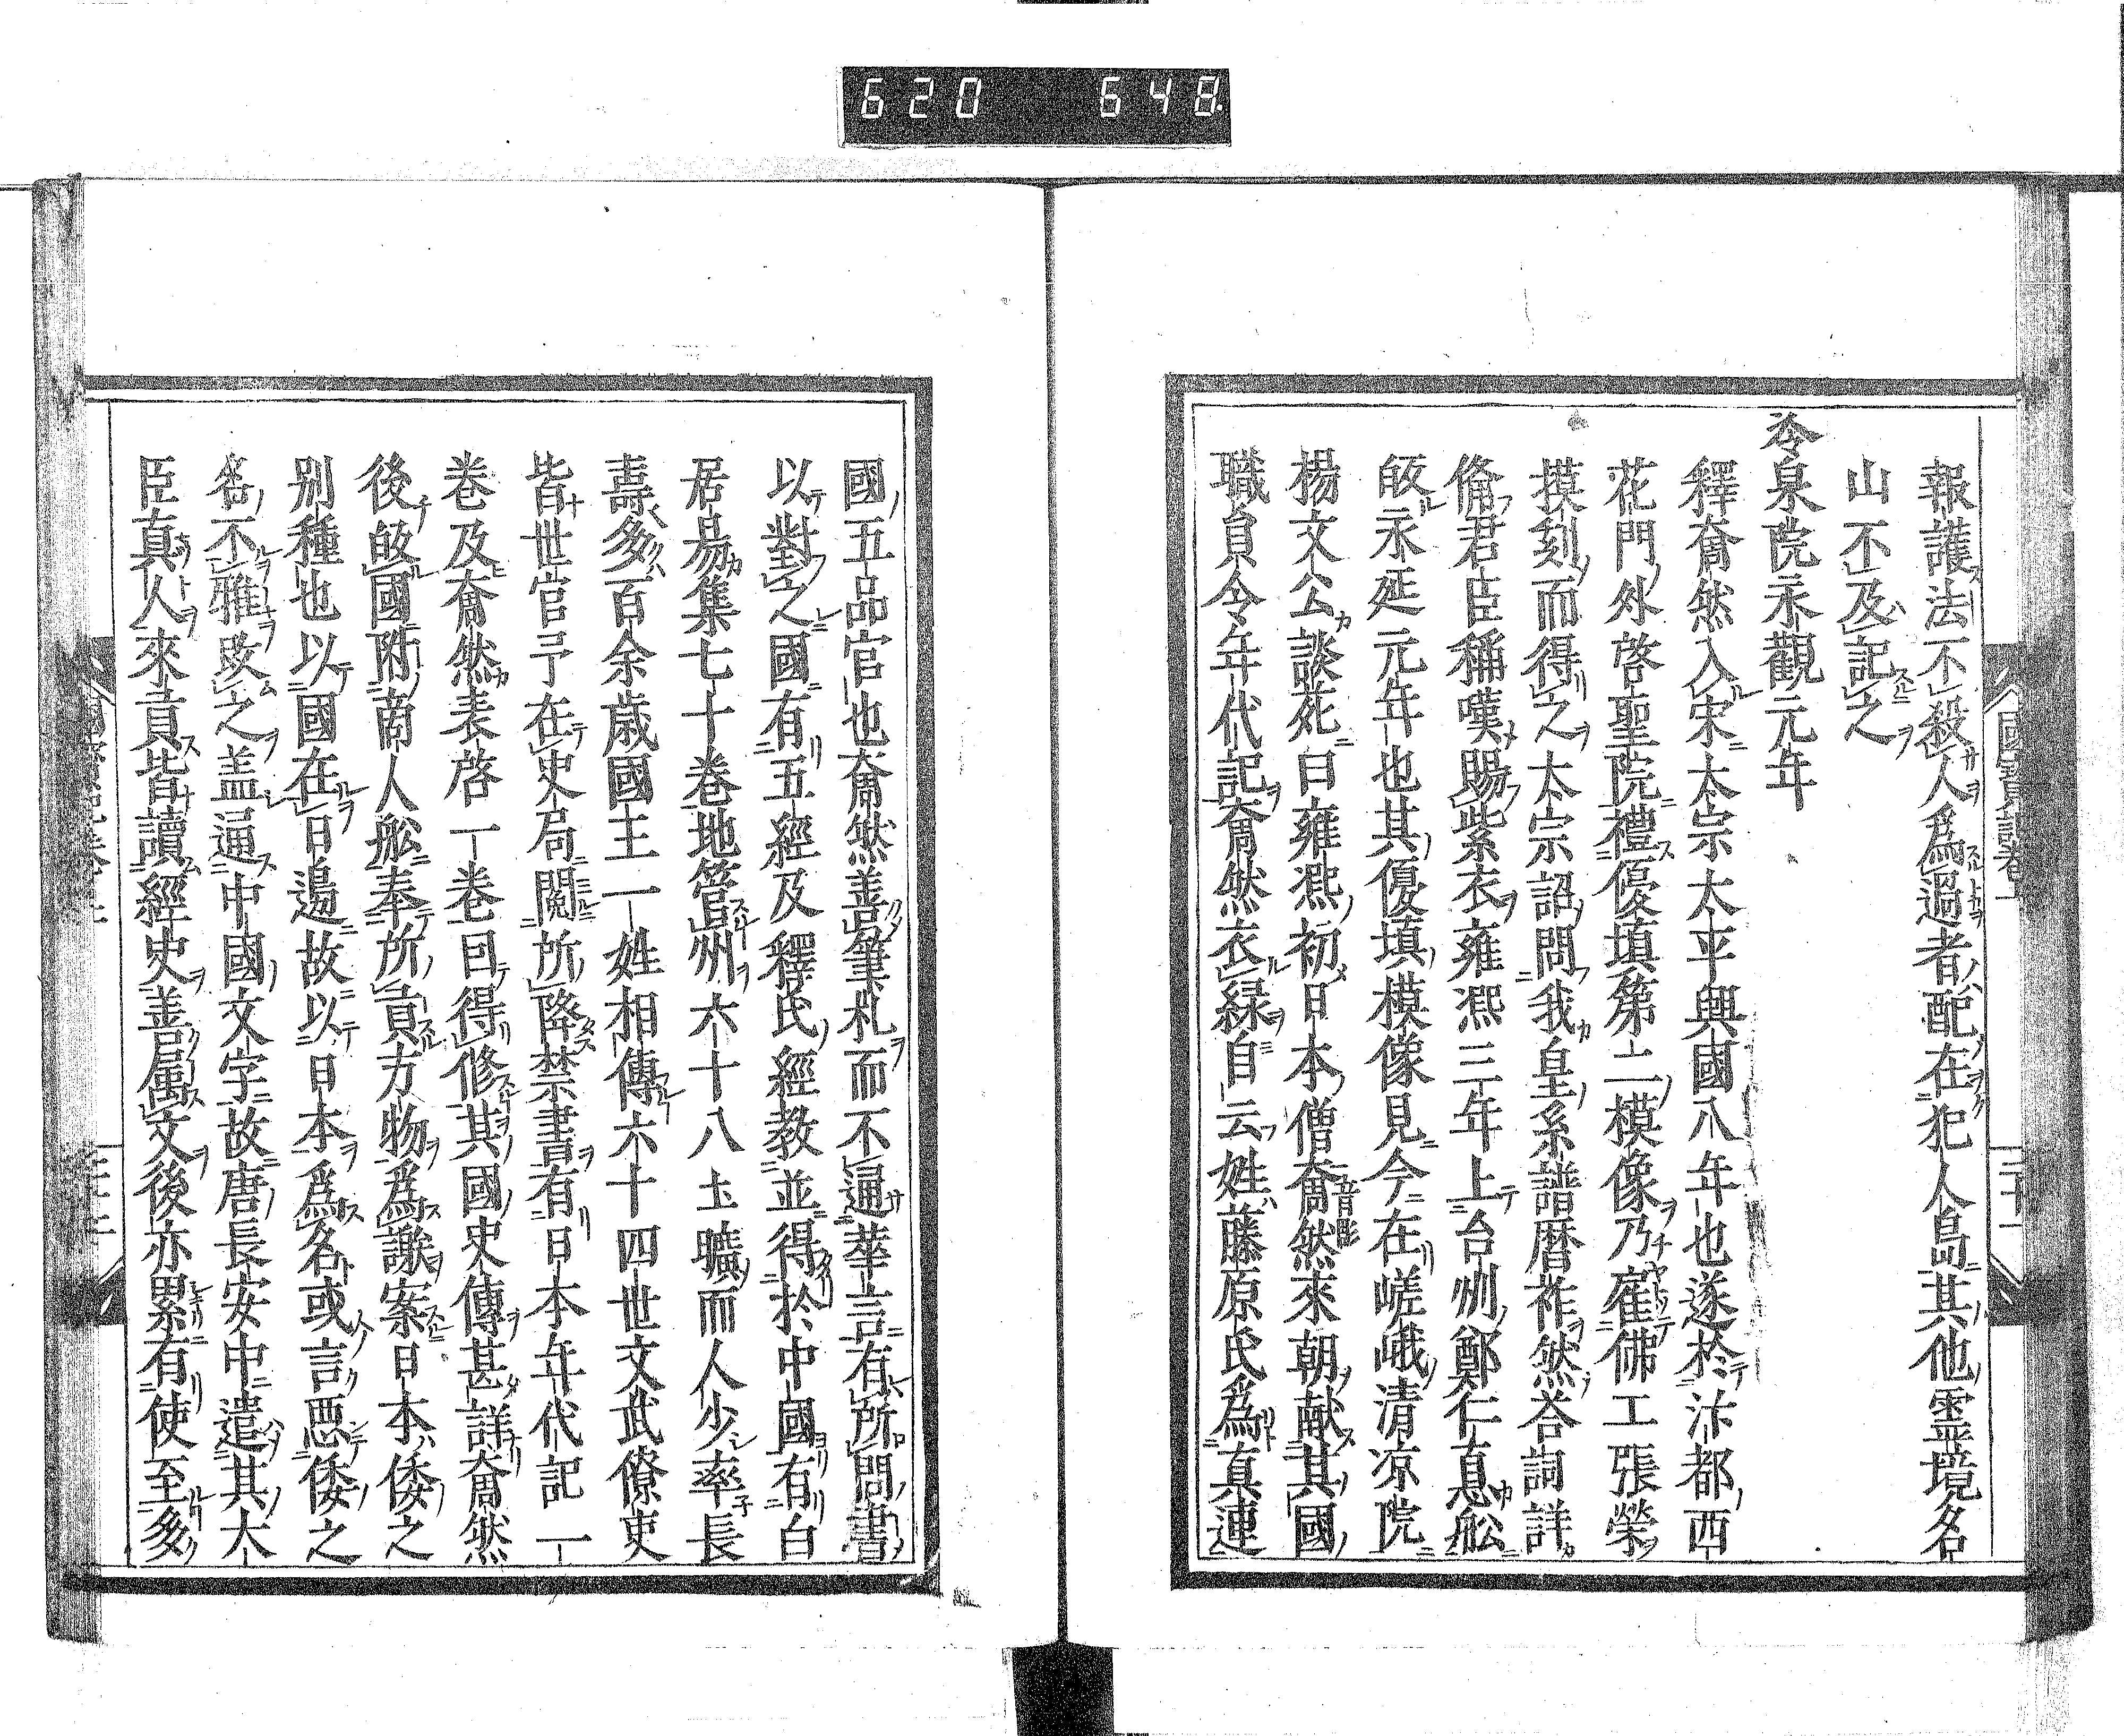 620 648
報護法不殺人爲過者配在犯人島其他霊境名
山不及記之
冷泉院永觀元年
釋奝然入宋太宗太平興國八年也遂於汴都西
花門外啓聖院禮優填第二模像乃雇佛工張榮
摸刻而得之太宗詔問我皇系譜曆祚然荅詞詳
備君臣稱嘆賜紫衣雍熙三年上台州鄭仁惪舩
皈永延元年也其優填模像見今在嵯峨清凉院
揚文公談苑曰雍熙初日本僧奝然來朝献其國
職貟令年代記奝然衣緑自云姓藤原氏爲真連
國五品官也奝然善筆札而不通華言有所問書
以對之國有五經及釋氏經教並得於中國有白
居易集七十巻地管州六十八土曠而人少率長
壽多百余歳國王一姓相傳六十四世文武僚吏
皆世官予在史局閲所降禁書有日本年代記一
巻及奝然表啓一巻因得修其國史傳甚詳奝然
後皈國附商人舩奉所貢方物爲謝案日本倭之
别種也以國在日邊故以日本爲名或言悪倭之
名不雅改之盖通中國文字故唐長安中遣其大
臣真人來貢皆讀經史善属文後亦累有使至多